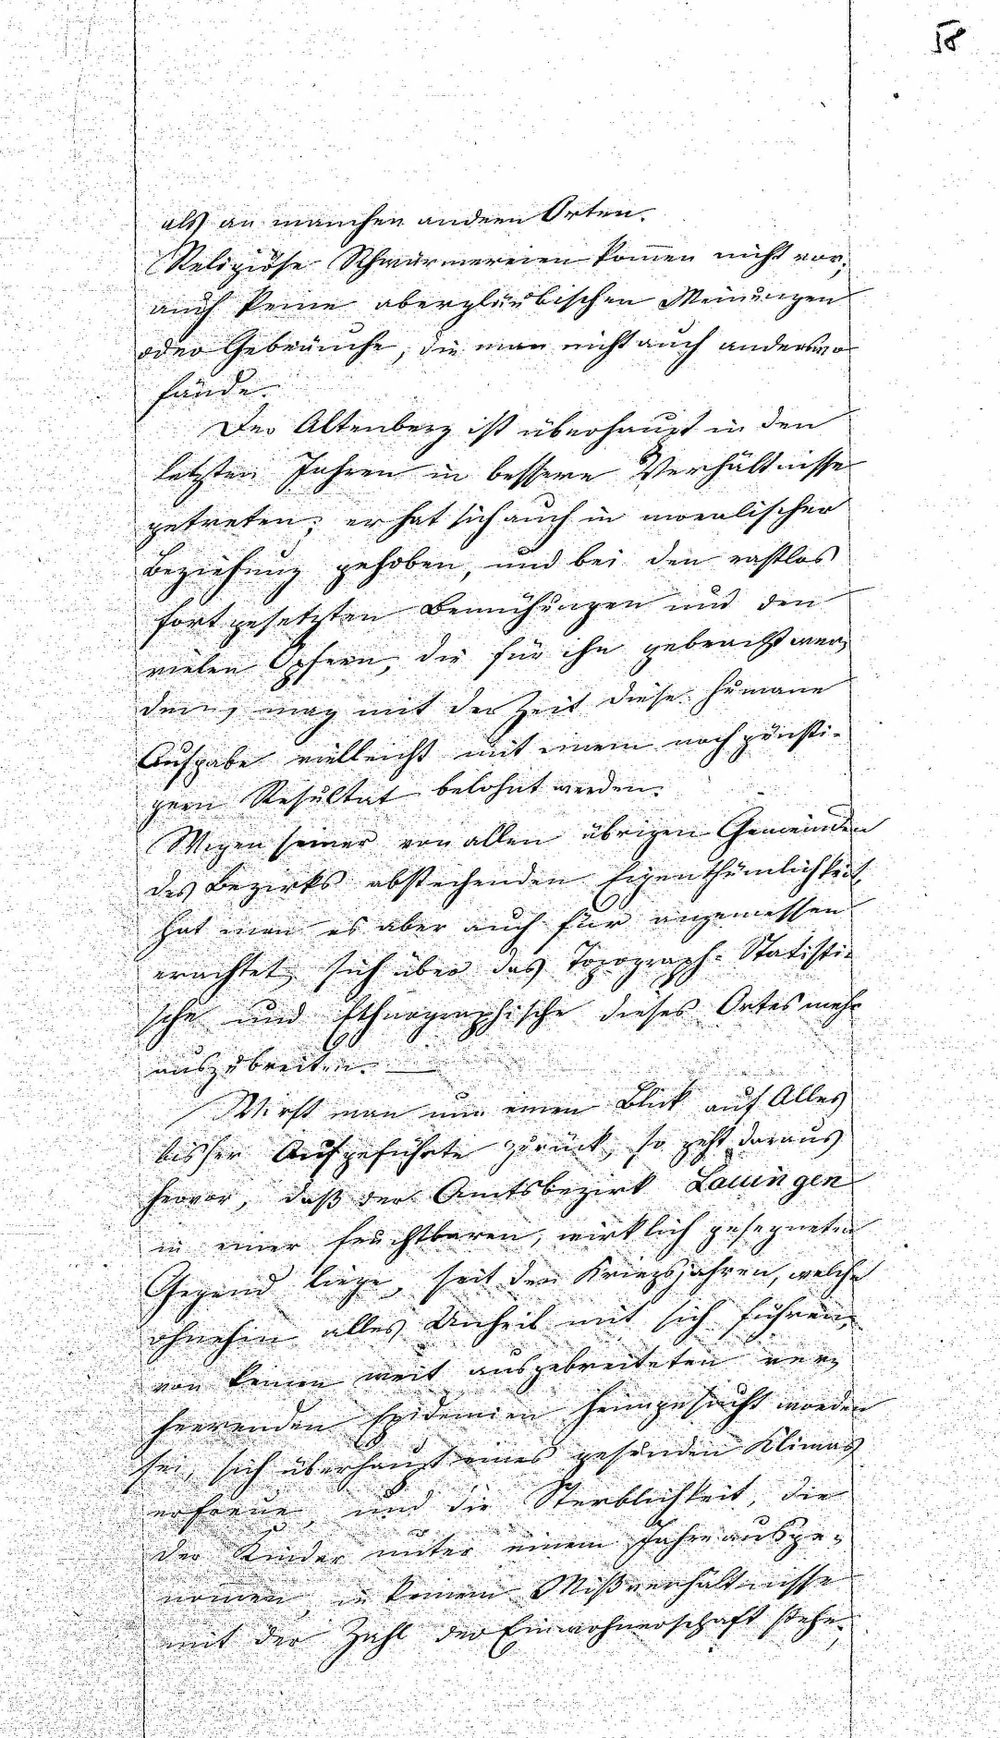 58
als an manchen andern Orten.
Religiöse Schwärmereien kom̅en nicht vor,
auch keine abergläubischen Meinungen
oder Gebräuche, die man nicht auch anderswo
fände.
Der Altenberg ist überhaupt in den
letzten Jahren in bessere Verhältnisse
getreten; er hat sich auch in moralischer
Beziehung gehoben, und bei den rastlos
fortgesetzten Bemühungen und den
vielen Opfern, die für ihn gebracht wer-
den, mag mit der Zeit diese humane
Aufgabe vielleicht mit einem noch günsti-
gern Resultat belohnt werden.
Wegen seiner von allen übrigen Gemeinden
des Bezirks abstechenden Eigenthümlichkeit,
hat man es aber auch für angemessen
erachtet, sich über das Topograph- Statisti-
sche und Ethnographische dieses Ortes mehr
auszubreiten. —
Wirft man nun einen Blick auf Alles
bisher Aufgeführte zurück, so geht daraus
hervor, daß der Amtsbezirk Lauingen
in einer fruchtbaren, wirklich gesegneten
Gegend liege, seit den Kriegsjahren, welche
ohnehin alles Unheil mit sich führen,
von keinen weit ausgebreiteten ver-
heerenden Epidemien heimgesucht worden
sei, sich überhaupt eines gesunden Klimas
erfreue, und die Sterblichkeit, die
der Kinder unter einem Jahre ausge-
nom̅en, in keinem Mißverhältnisse
mit der Zahl der Einwohnerschaft stehe,